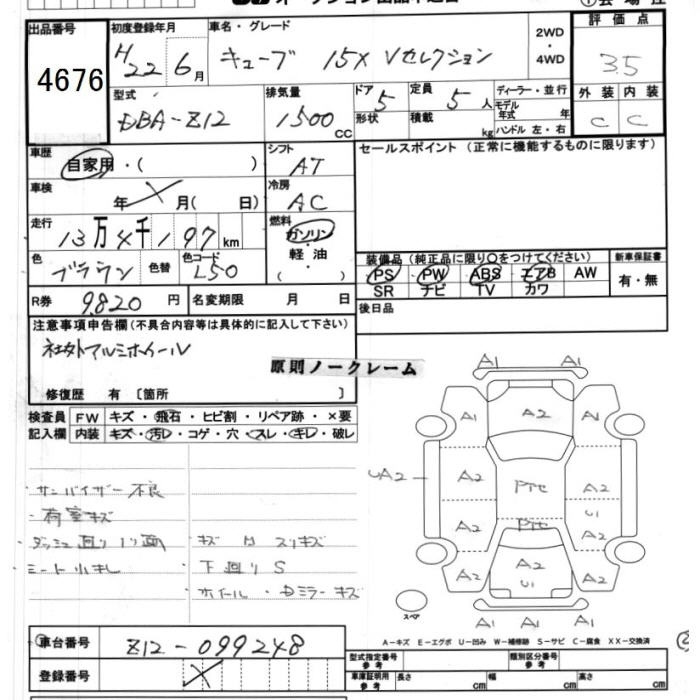 出品番号 4676
初度登録年月 H22 6月
車名・グレード キューブ 15X Vセレクション
2WD・4WD
評価点 3.5
型式 DBA-Z12
排気量 1500 CC
ドア 5 形状
定員 5人 積載 kg
ディーラー・並行
モデル年式 年
ハンドル 左・右
外装 C 内装 C
車歴 自家用・( )
シフト AT
セールスポイント (正常に機能するものに限ります)
車検 年 月( 日)
冷房 AC
走行 13万4千197km
燃料 ガソリン・軽油
色 ブラウン 色替 色コード L50
装備品 (純正品に限り○をつけてください)
新車保証書 有・無
PS PW ABS エアB AW
SR ナビ TV カワ
R券 9820円 名変期限 月 日
後日品
注意事項申告欄 (不具合内容等は具体的に記入して下さい)
社外アルミホイール
原則ノークレーム
修復歴 有 〔箇所 〕
検査員記入欄 FW キズ・飛石・ヒビ割・リペア跡・×要
内装 キズ・汚レ・コゲ・穴・スレ・キレ・破レ
・サンバイザー不良
・荷室キズ
A1 A1
A1 A2 A1
UA2 A2 A2
U1
A2 A2
A2 A2 A2
U1
スペア
A1 A1 A1
下廻りS
A-キズ E-エクボ U-凹み W-補修跡 S-サビ C-腐食 XX-交換済
車台番号 Z12-099248
登録番号
型式指定番号 参考
類別区分番号 参考
車庫証明用 参考 長さ cm 幅 cm 高さ cm